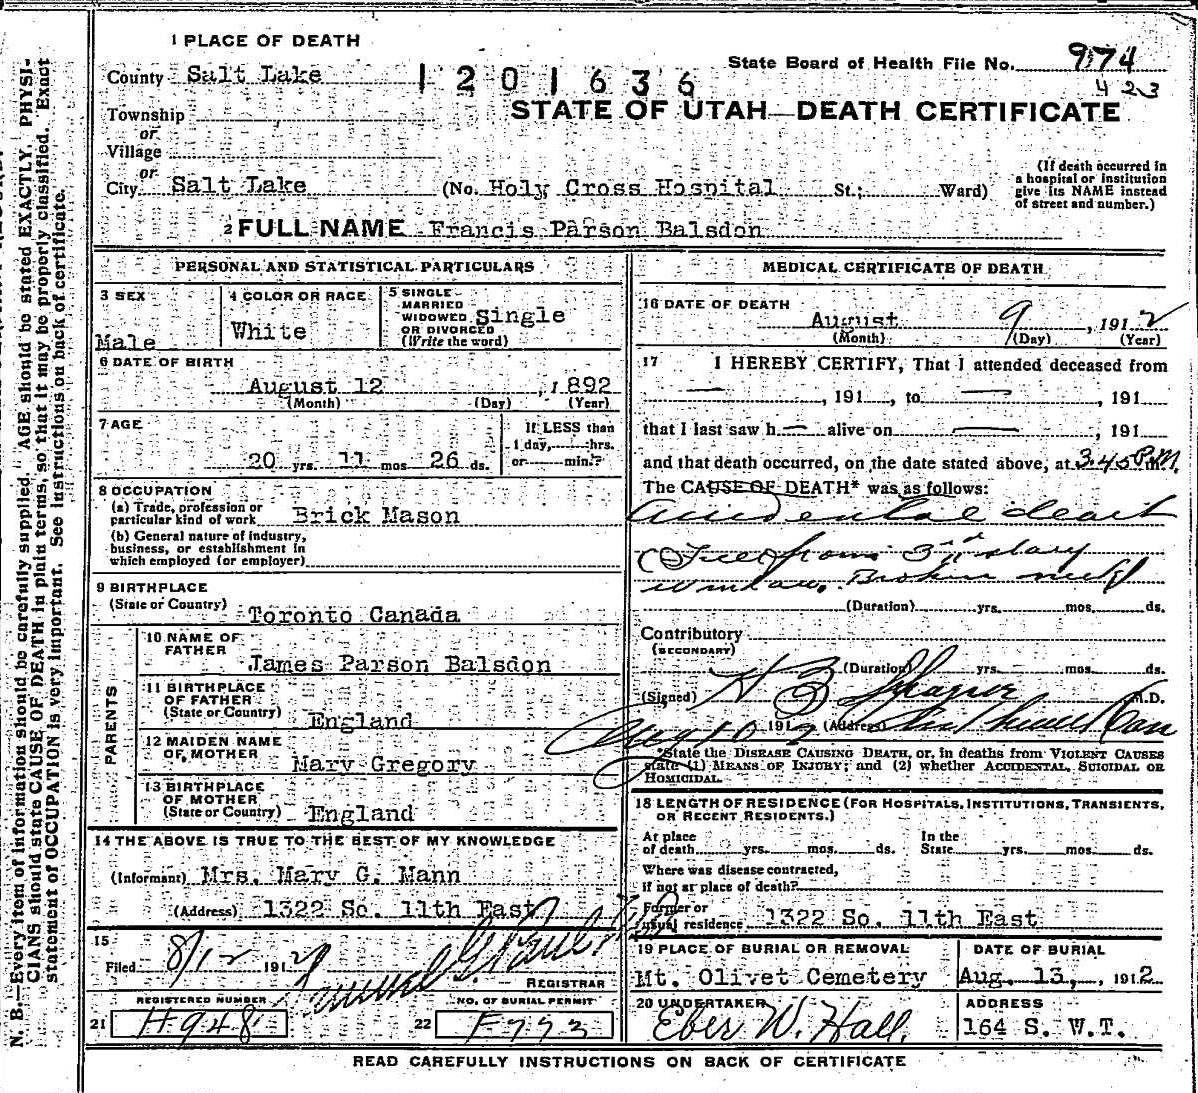 1 PLACE OF DEATH
County Salt Lake
1201636
State Board of Health File No. 974
423
STATE OF UTAH—DEATH CERTIFICATE
Township
or
Village
or
City Salt Lake (No. Holy Cross Hospital St.; Ward)
(If death occurred in a hospital or institution give its NAME instead of street and number.)
2 FULL NAME Francis Parson Balsdon
PERSONAL AND STATISTICAL PARTICULARS
3 SEX
Male
4 COLOR OR RACE
White
5 SINGLE
MARRIED
WIDOWED
OR DIVORCED
(Write the word)
Single
6 DATE OF BIRTH
August 12, 1892
(Month) (Day) (Year)
7 AGE
20 yrs. 11 mos. 26 ds.
If LESS than
1 day, hrs.
or min.?
8 OCCUPATION
(a) Trade, profession or
particular kind of work Brick Mason
(b) General nature of industry,
business, or establishment in
which employed (or employer)
9 BIRTHPLACE
(State or Country) Toronto Canada
PARENTS
10 NAME OF
FATHER
James Parson Balsdon
11 BIRTHPLACE
OF FATHER
(State or Country) England
12 MAIDEN NAME
OF MOTHER Mary Gregory
13 BIRTHPLACE
OF MOTHER
(State or Country) England
14 THE ABOVE IS TRUE TO THE BEST OF MY KNOWLEDGE
(Informant) Mrs. Mary G. Mann
(Address) 1322 So. 11th East
15
Filed 8/12 1912
Samuel G. Paul
REGISTRAR
REGISTERED NUMBER
21 H948
NO. OF BURIAL PERMIT
22 F773
MEDICAL CERTIFICATE OF DEATH
16 DATE OF DEATH
August 9, 1912
(Month) (Day) (Year)
17 I HEREBY CERTIFY, That I attended deceased from
— , 191 , to — , 191
that I last saw h — alive on — , 191
and that death occurred, on the date stated above, at 3.45 P.M.
The CAUSE OF DEATH* was as follows:
Accidental death
(Fell from 3rd story
window. Broken neck)
(Duration) yrs. mos. ds.
Contributory
(SECONDARY)
(Duration) yrs. mos. ds.
(Signed) H B Sprague M.D.
Aug 10 1912 (Address)
*State the DISEASE CAUSING DEATH, or, in deaths from VIOLENT CAUSES
state (1) MEANS OF INJURY; and (2) whether ACCIDENTAL, SUICIDAL OR
HOMICIDAL.
18 LENGTH OF RESIDENCE (FOR HOSPITALS, INSTITUTIONS, TRANSIENTS,
OR RECENT RESIDENTS.)
At place
of death yrs. mos. ds.
In the
State yrs. mos. ds.
Where was disease contracted,
if not at place of death?
Former or
usual residence 1322 So. 11th East
19 PLACE OF BURIAL OR REMOVAL
Mt. Olivet Cemetery
DATE OF BURIAL
Aug. 13, 1912
20 UNDERTAKER
Eber W. Hall.
ADDRESS
164 S. W.T.
READ CAREFULLY INSTRUCTIONS ON BACK OF CERTIFICATE
N. B.—Every item of information should be carefully supplied. AGE should be stated EXACTLY. PHYSI-
CIANS should state CAUSE OF DEATH in plain terms, so that it may be properly classified. Exact
statement of OCCUPATION is very important. See instructions on back of certificate.